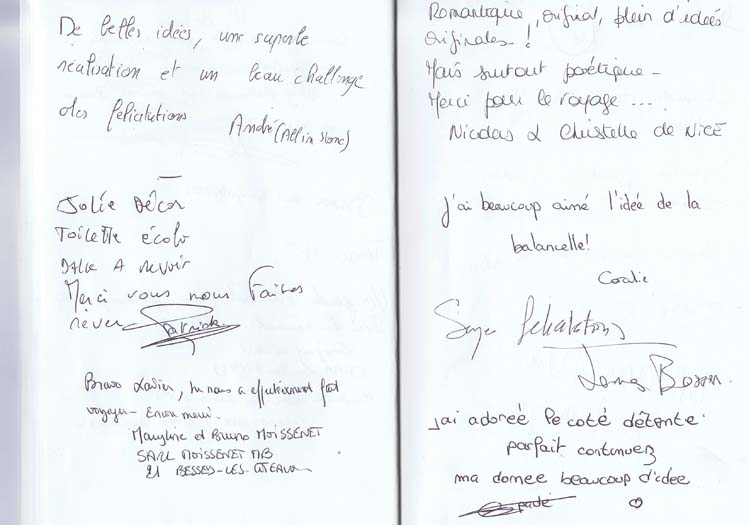 De belles idées, une superbe
réalisation et un beau challenge
des félicitations
André (Allin Stone)
Jolie Décor
Toilette écolo
A revoir
Merci vous nous Faites
rêver Patrick
Bravo Xavier, tu nous a effectivement fait
voyager - Encore merci.
Maryline et Bruno MOISSENET
SARL MOISSENET MB
21 BESSEY-LES-CITEAUX
Romantique, original, plein d'ideés
originales !
Mais surtout poétique -
Merci pour le voyage ...
Nicolas & Christelle de NICE
J'ai beaucoup aimé l'idée de la
balancelle!
Coralie
Super félicitations
j'ai adoreé le coté détente.
parfait continuez
ma donnee beaucoup d'idee